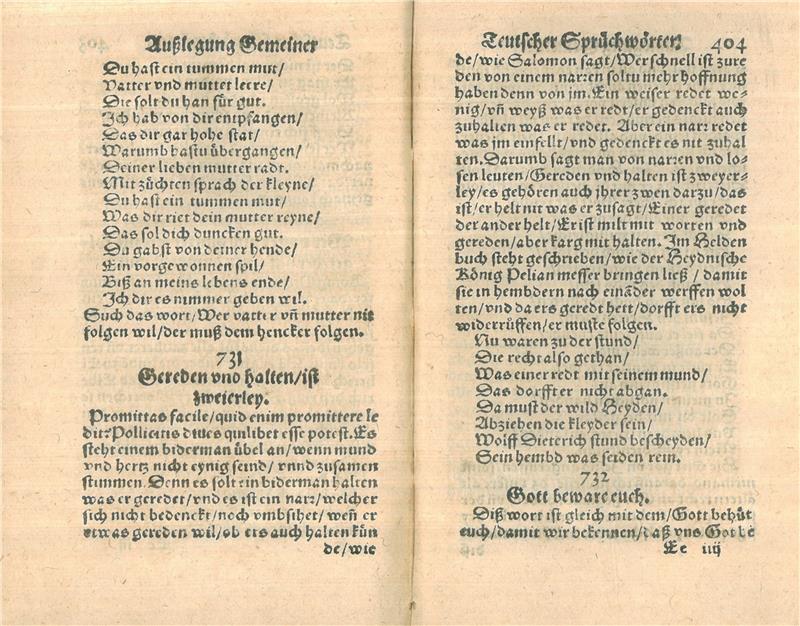 Außlegung Gemeiner
Du hast ein tummen mut/
Vatter vnd mutter lere/
Die solt du han für gut.
Ich hab von dir entpfangen/
Das dir gar hohe stat/
Warumb hastu übergangen/
Deiner lieben mutter radt.
Mit züchten sprach der kleyne/
Du hast ein tummen mut/
Was dir riet dein mutter reyne/
Das sol dich duncken gut.
Du gabst von deiner hende/
Ein vorgewonnen spil/
Biß an meins lebens ende/
Ich dir es nimmer geben wil.
Such das wort/Wer vatter vñ mutter nit
folgen wil/der muß dem hencker folgen.
731
Gereden vnd halten/ist
zweierley.
Promittas facile/quid enim promittere le
dit? Pollicitis diues quilibet esse potest. Es
steht einem biderman übel an/wenn mund
vnd hertz nicht eynig seind/vnnd zusamen
stimmen. Denn es solt ein biderman halten
was er geredet/vnd es ist ein narr/welcher
sich nicht bedenckt/noch vmbsihet/weñ er
etwas gereden wil/ob ers auch halten kün
de/wie
Teutscher Sprüchwörter. 404
de/wie Salomon sagt/Wer schnell ist zure
den von einem narren soltu mehr hoffnung
haben denn von jm. Ein weiser redet we-
nig/vñ weyß was er redt/er gedenckt auch
zuhalten was er redet. Aber ein narr redet
was jm einfellt/vnd gedenckt es nit zuhal
ten. Darumb sagt man von narren vnd lo-
sen leuten/Gereden vnd halten ist zweyer-
ley/es gehören auch jhrer zwen darzu/das
ist/er helt nit was er zusagt/Einer geredet
der ander helt/Er ist milt mit worten vnd
gereden/aber karg mit halten. Im Helden
buch steht geschrieben/wie der Heydnische
König Pelian messer bringen ließ/damit
sie in hembdern nach einãder werffen wol
ten/vnd da ers geredt hett/dorfft ers nicht
widerrüffen/er muste folgen.
Nu waren zu der stund/
Die recht also gethan/
Was einer redt mit seinem mund/
Das dorffter nicht abgan.
Da must der wild Heyden/
Abziehen die kleyder sein/
Wolff Dieterich stund bescheyden/
Sein hembd was seiden rein.
732
Gott beware euch.
Diß wort ist gleich mit dem/Gott behüt
euch/damit wir bekennen/daß vns Got be
Ee iiij